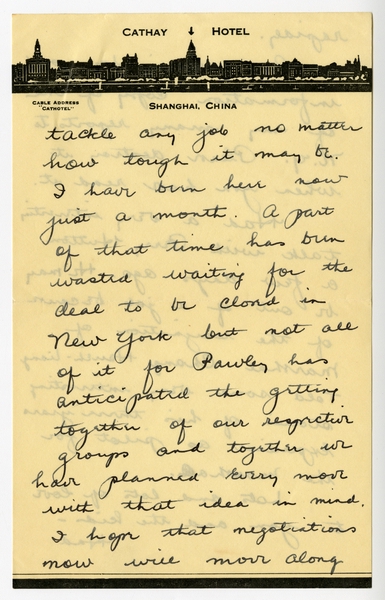 CATHAY HOTEL
CABLE ADDRESS
"CATHOTEL"
SHANGHAI, CHINA
tackle any job no matter
how tough it may be.
I have been here now
just a month. A part
of that time has been
wasted waiting for the
deal to be closed in
New York but not all
of it for Pawley has
anticipated the getting
together of our respective
groups and together we
have planned every move
with that idea in mind.
I hope that negotiations
now will move along